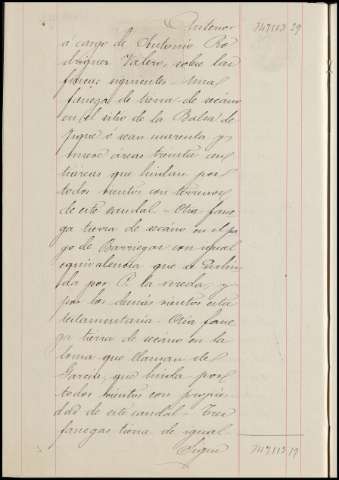 Anterior 747113 29
á cargo de Antonio Ro
driguez Valero, sobre las
fincas siguientes - Una
fanega de tierra de secano
en el sitio de la Balsa de
que ó sean cuarenta y
nueve áreas treinta cen
tiáreas que lindan por
todos vientos con terrenos
de este caudal - Otra fane
ga tierra de secano en el pa
go de Barriegar con igual
equivalencia que
da por P. la vereda, y
por los demás vientos esta
testamentaria - Otra fane
ga tierra de secano en la
loma que llaman de
García, que linda por
todos vientos con propie
dad de este caudal - Tres
fanegas tierra de igual
Sigue 747113 29